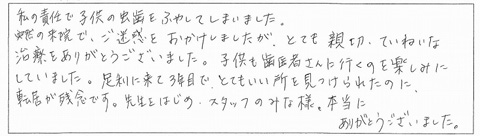 私の責任で子供の虫歯をふやしてしまいました。
突然の来院で、ご迷惑をおかけしましたが、とても親切、ていねいな
治療をありがとうございました。子供も歯医者さんに行くのを楽しみに
していました。足利に来て3年目で、とてもいい所を見つけられたのに、
転居が残念です。先生をはじめ、スタッフのみな様。本当に
ありがとうございました。